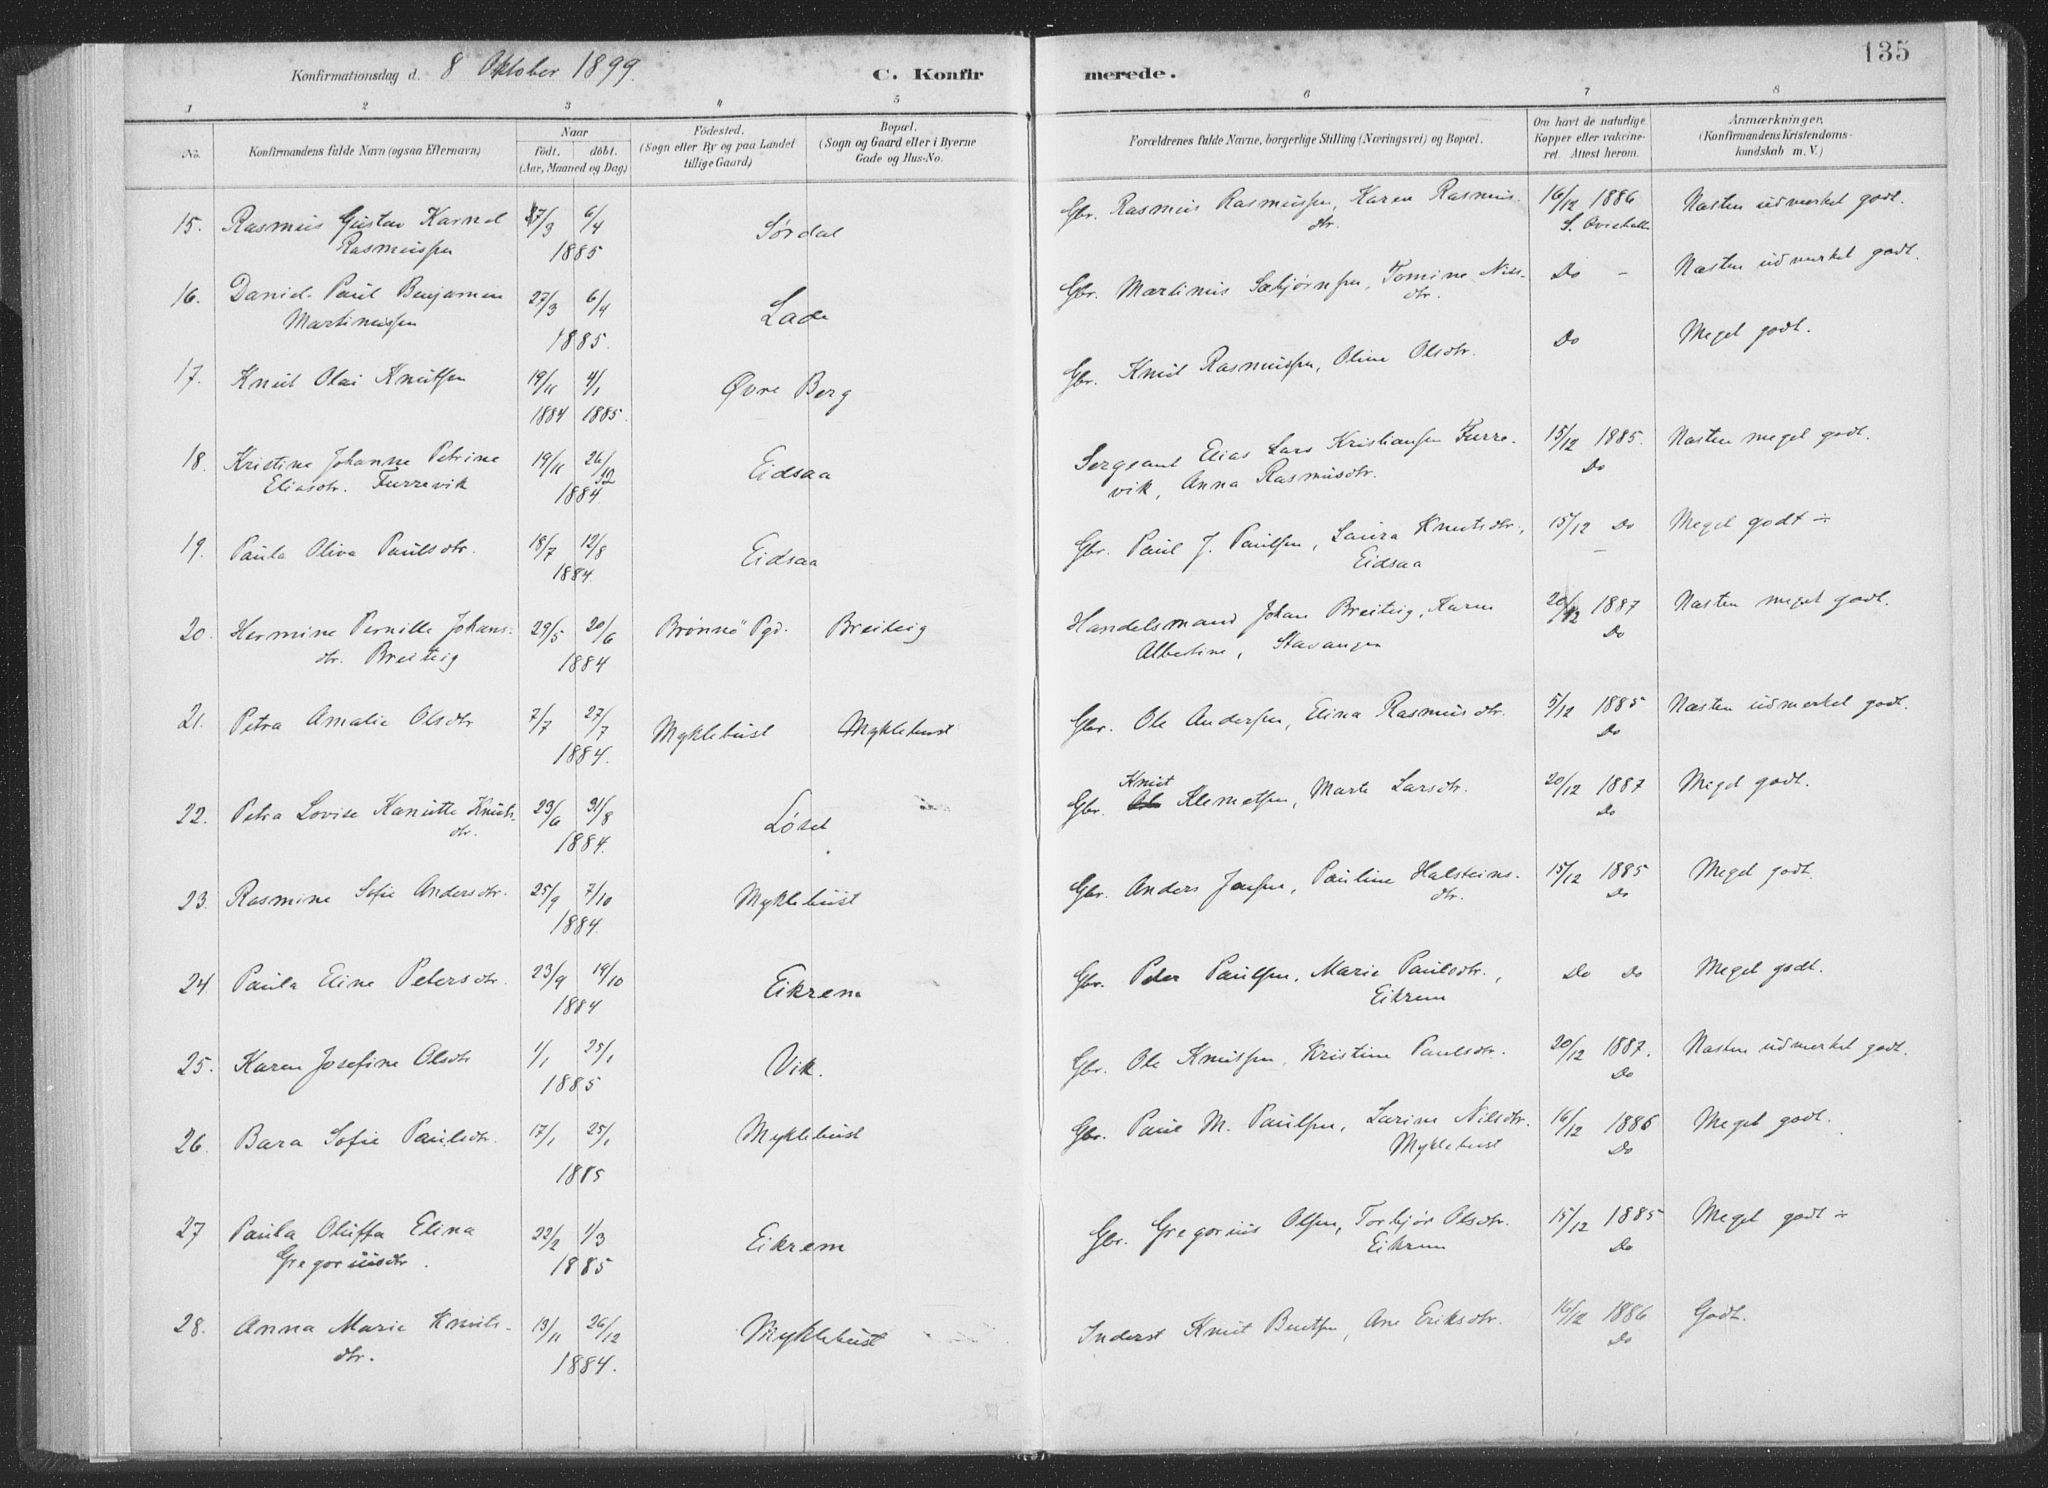 135
Konfirmationsdag d. 8 Oktober 1899. C. Konfirmerede.
1 2 3 4 5 6 7 8
No. Konfirmandens fulde Navn (ogsaa Efternavn) Naar Födested. Bopæl. Forældrenes fulde Navne, borgerlige Stilling (Næringsvei) og Bopæl. Om havt de naturlige Anmærkninger,
født. døbt. (Sogn eller By og paa Landet (Sogn og Gaard eller i Byerne Kopper eller vakcine- (Konfirmandens Kristendoms-
(Aar, Maaned og Dag) tillige Gaard) Gade og Hus-No. ret. Attest herom. kundskab m. V.)
15. Rasmus Gustav Karnel 27/3 6/4 Sørdal Gbr. Rasmus Rasmussen, Karen Rasmus- 16/12 1886 Næsten udmerket godt.
Rasmussen 1885 dtr.
16. Daniel Paul Benjamin 27/3 6/4 Lade Gbr. Martinus Sæbjørnsen, Tomine Nils- Do - Næsten udmerket godt.
Martinussen 1885. dtr.
17. Knut Olai Knutsen 19/11 4/1 Øvre Berg Gbr. Knut Rasmussen, Oline Olsdtr. Do Meget godt.
1884 1885.
18. Kristine Johanne Petrine 19/11 26/12 Eidsaa Sergeant Elias Lars Kristiansen Furre- 15/12 1885. Næsten meget godt.
Eliasdtr. Furrevik 1884 vik, Anna Rasmusdtr. Do
19. Paula Oliva Paulsdtr. 18/7 12/8 Eidsaa Gbr. Paul J. Paulsen, Laura Knutsdtr., 15/12 Do Meget godt ÷
1884. Eidsaa
20. Hermine Pernille Johans- 29/5 20/6 Brønnø Pgd. Breiteig Handelsmand Johan Breiteig, Karen 20/12 1887 Næsten meget godt.
dtr. Breiteig 1884 Albertine, Stavangen Do
21. Petra Amalie Olsdtr 7/7 27/7 Myklebust Myklebust Gbr. Ole Andersen, Elina Rasmusdtr. 5/12 1885 Næsten udmerket godt.
1884. Do
22. Petra Lovise Kanutte Knuts- 23/6 31/8 Løset Gbr. Knut Klemetsen, Marte Larsdtr. 20/12 1887 Meget godt.
dtr. 1884. Do
23. Rasmine Sofie Andersdtr. 25/9 7/10 Myklebust Gbr. Anders Jensen, Pauline Halsteins- 15/12 1885 Meget godt.
1884. dtr. Do
24. Paula Eline Petersdtr. 23/9 19/10 Eikrem Gbr. Peter Paulsen, Marie Paulsdtr., Do Do Meget godt.
1884 Eikrem
25. Karen Josefine Olsdtr 1/1 25/1 Vik. Gbr. Ole Knutsen, Kristine Paulsdtr. 20/12 1887. Næsten udmerket godt.
1885 Do
26. Bara Sofie Paulsdtr. 17/1 25/1 Myklebust Gbr. Paul M. Paulsen, Larine Nilsdtr. 16/12 1886 Meget godt.
1885 Myklebust Do
27 Paula Oluffa Elina 22/2 1/3 Eikrem Gbr. Gregorius Olsen, Torbjør Olsdtr. 15/12 1885 Meget godt ÷
Gregoriusdtr. 1885 Eikrem Do
28. Anna Marie Knuts- 13/11 26/12 Myklebust Inderst Knut Bentsen, Ane Eriksdtr. 16/12 1886 Godt.
dtr. 1884. Do